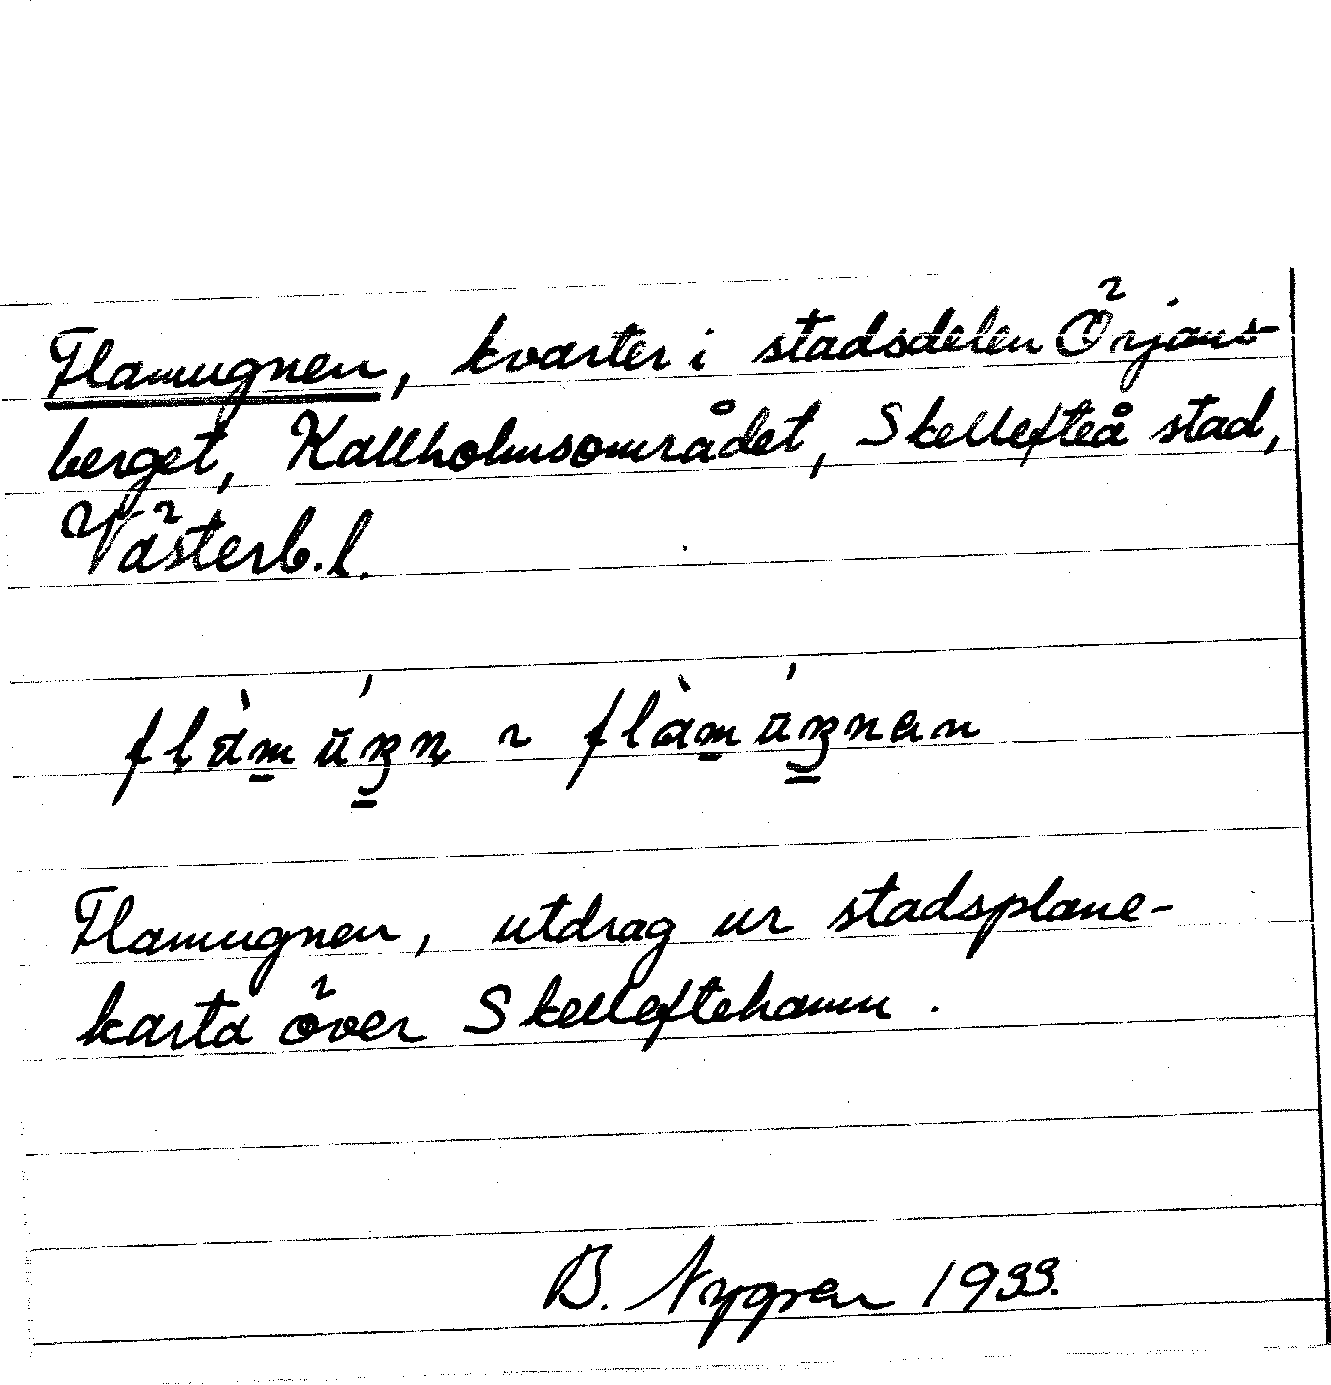 Flamugnen, kvarter i stadsdelen Örjans-
berget, Kallholmsområdet, Skellefteå stad,
Västerb.l.
Flamugnen, utdrag ur stadsplane-
karta över Skelleftehamn.
B. Nygren 1933.